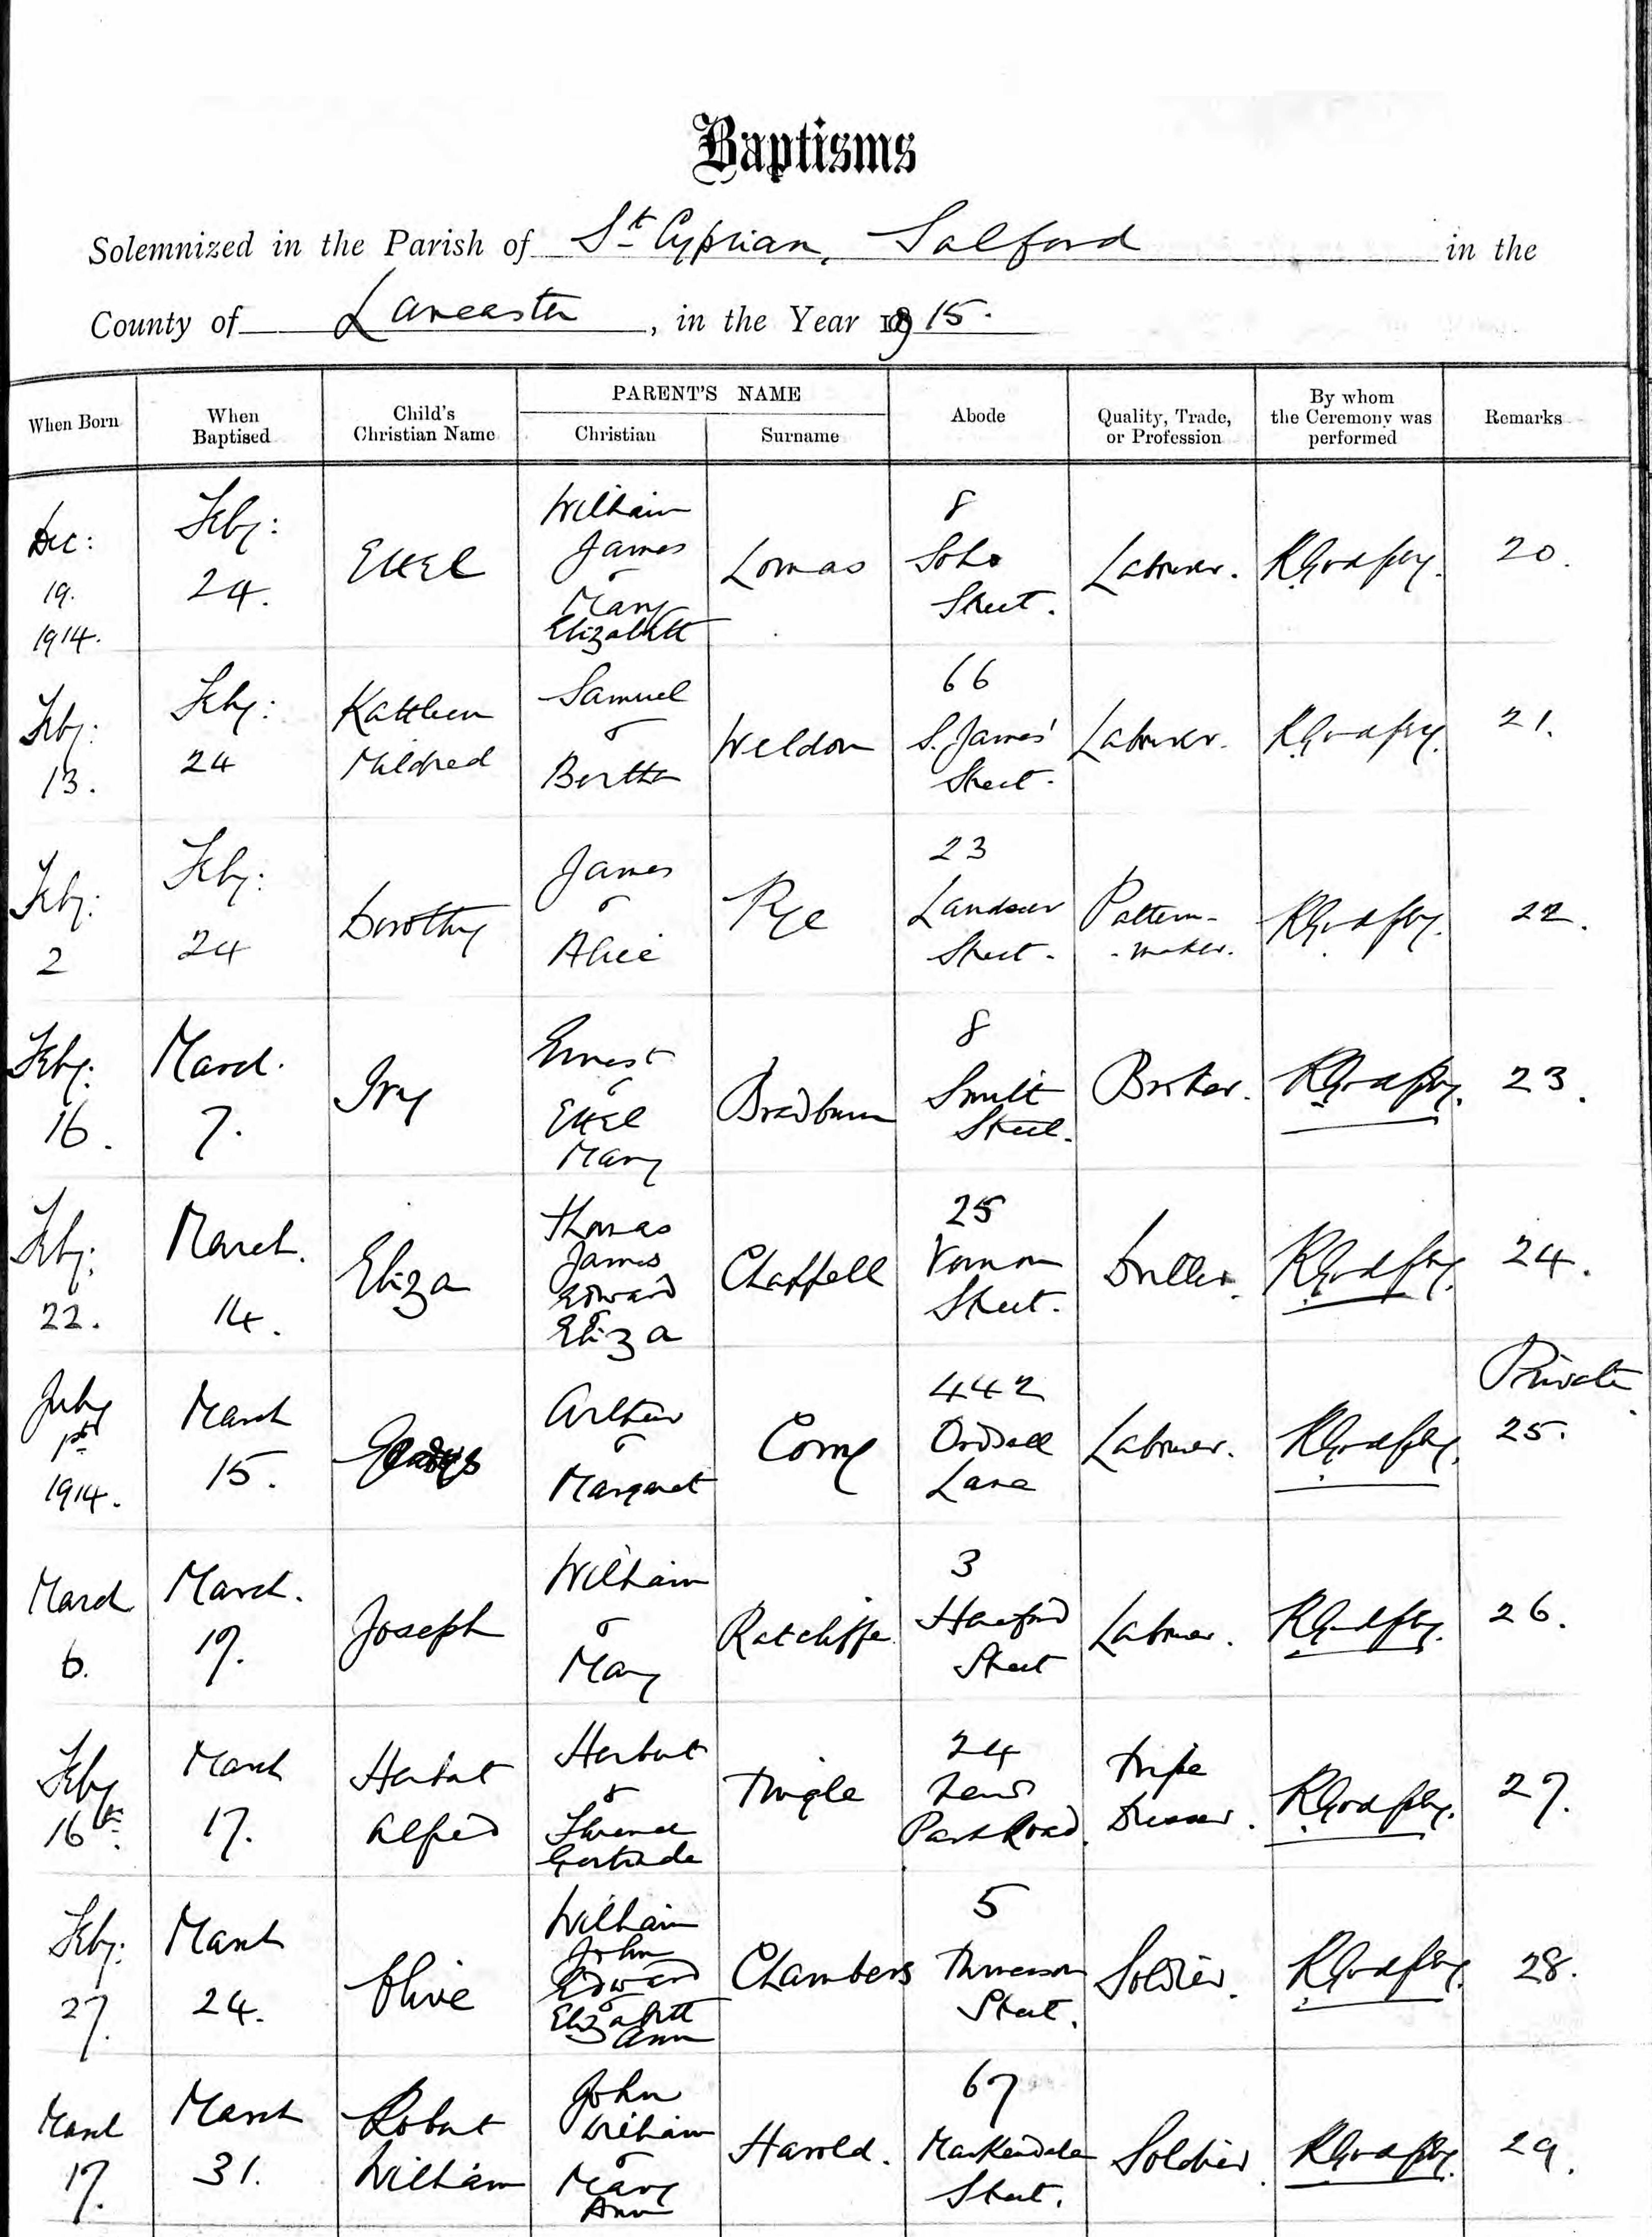 Baptisms
Solemnized in the Parish of St Cyprian, Salford in the
County of Lancaster, in the Year 1915.
When Born
When Baptised
Child's Christian Name
PARENT'S NAME
Christian
Surname
Abode
Quality, Trade, or Profession
By whom the Ceremony was performed
Remarks
Dec: 19. 1914.
Feby: 24.
Ethel
William James & Mary Elizabeth
Lomas
8 Soho Street.
Labourer.
R Godfrey.
20.
Feby: 13.
Feby: 24
Kathleen Mildred
Samuel & Bertha
Weldon
66 S. James' Street.
Labourer.
R Godfrey.
21.
Feby: 2
Feby: 24
Dorothy
James & Alice
Pye
23 Landseer Street.
Pattern-maker.
R Godfrey.
22.
Feby: 16.
March. 7.
Ivy
Ernest & Ethel Mary
Bradburn
8 Smith Street.
Broker.
R Godfrey.
23.
Feby: 22.
March. 14.
Eliza
Thomas James Edward & Eliza
Chappell
25 Vernon Street.
Driller.
R Godfrey.
24.
July 1st 1914.
March 15.
Gladys
Arthur & Margaret
442 Ordsall Lane
Labourer.
R Godfrey.
Private 25.
March 6.
March. 17.
Joseph
William & Mary
Ratcliffe
3 Hereford Street
Labourer.
R Godfrey.
26.
Feby 16th.
March 17.
Herbert Alfred
Herbert & Florence Gertrude
Tingle
24 Park Road.
Tripe Dresser.
R Godfrey.
27.
Feby: 27.
March 24.
Olive
William John Edward & Elizabeth Ann
Chambers
5 Street.
Soldier.
R Godfrey.
28.
March 17.
March 31.
Robert William
John William & Mary Ann
Harold.
67 Markendale Street.
Soldier.
R Godfrey.
29.